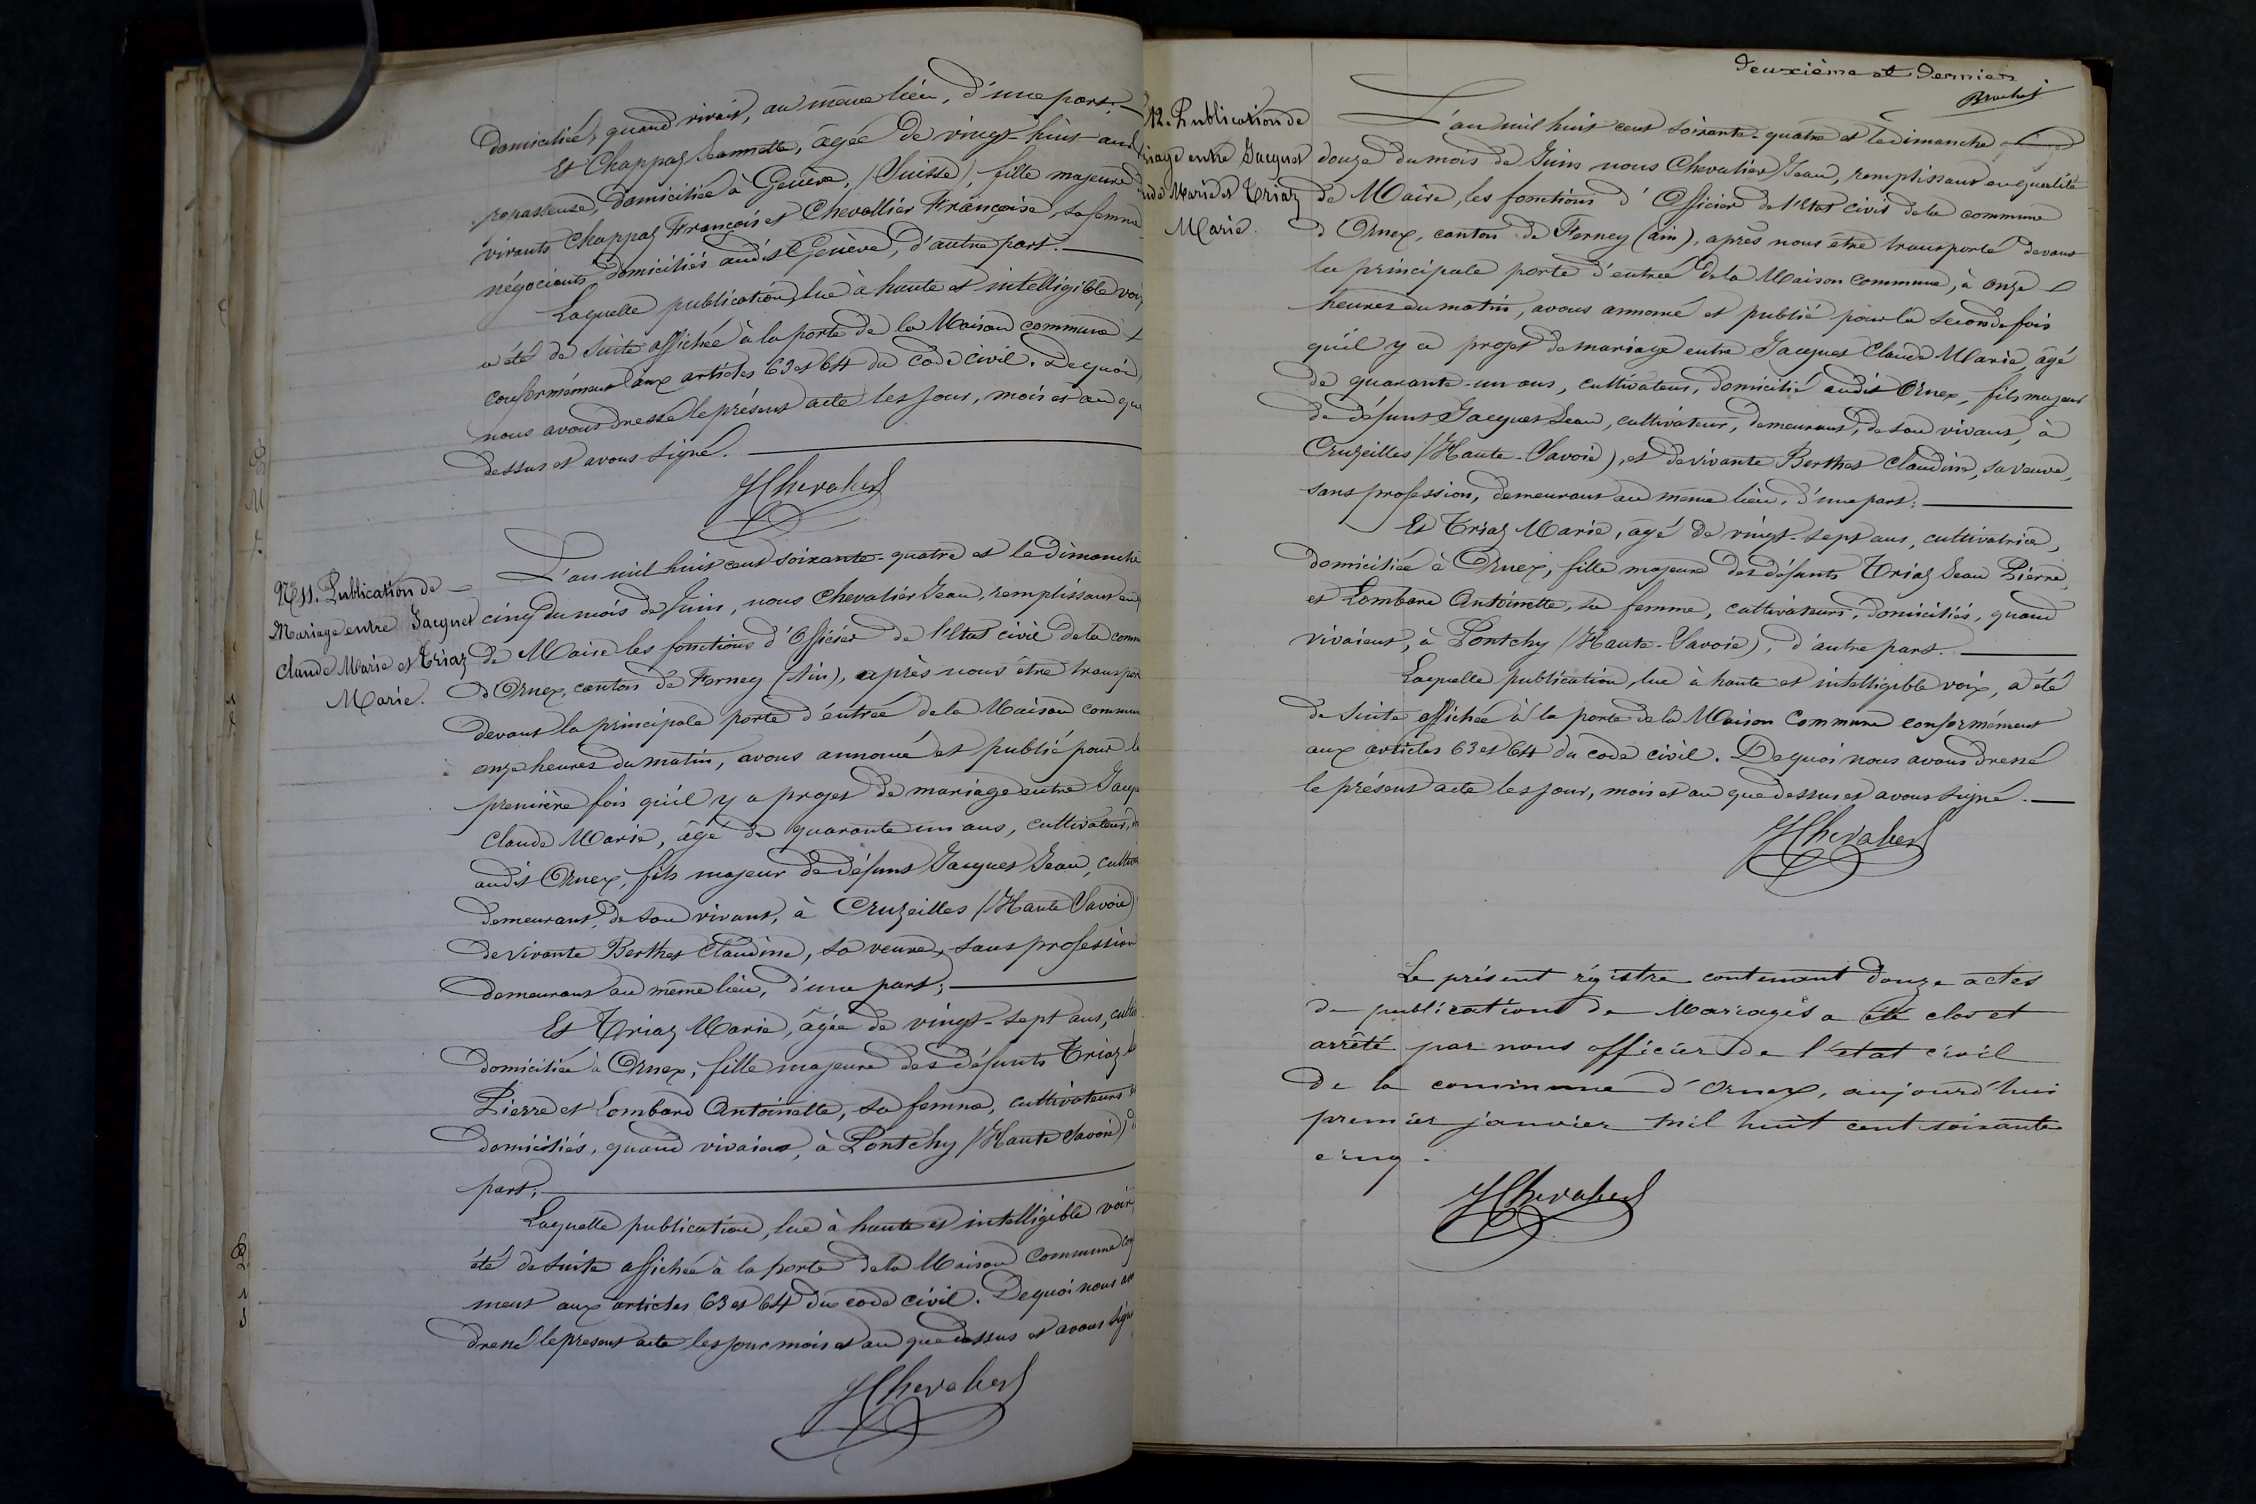 domiciliée, quand vivait, au même lieu, d'une part.
Et Chappaz Jeannette, âgée de vingt-huit ans
repasseuse, domiciliée à Genève, (Suisse), fille majeure
vivants Chappaz François et Chevallier Françoise, sa femme
négociants domiciliés audit Genève, d'autre part.
Laquelle publication, lue à haute et intelligible voix
a été de suite affichée à la porte de la Maison commune
conformément aux articles 63 et 64 du code civil. De quoi
nous avons dressé le présent acte les jour, mois et an que
dessus et avons signé.
JChevalier
N° 11. Publication de
Mariage entre Jacquet
Claude Marie et Triaz
Marie.
L'an mil huit cent soixante-quatre et le dimanche
cinq du mois de Juin, nous Chevalier Jean, remplissant en
de Maire les fonctions d'Officier de l'Etat civil de la comm
d'Ornex, canton de Ferney (Ain), après nous être transpor
devant la principale porte d'entrée de la Maison commun
onze heures du matin, avons annoncé et publié pour la
première fois qu'il y a projet de mariage entre Jacqu
Claude Marie, âgé de quarante un ans, cultivateur,
audit Ornex, fils majeur de défunt Jacquet Jean, cultiv
demeurant, de son vivant, à Cruzeilles (Haute Savoie)
de vivante Berthet Claudine, sa veuve, sans profession
demeurant au même lieu, d'une part;
Et Triaz Marie, âgée de vingt-sept ans, cultiv
domiciliée à Ornex, fille majeure des défunts Triaz
Pierre et Lombard Antoinette, sa femme, cultivateurs
domiciliés, quand vivaient, à Pontchy (Haute Savoie) d
part;
Laquelle publication, lue à haute et intelligible voix
été de suite affichée à la porte de la Maison commune con
ment aux articles 63 et 64 du code civil. De quoi nous av
dressé le présent acte les jour mois et an que dessus et avons signé
JChevalier
deuxième et dernier
Brochet
12. Publication de
riage entre Jacquet
ude Marie et Triaz
Marie.
L'an mil huit cent soixante-quatre et le dimanche
douze du mois de Juin nous Chevalier Jean, remplissant en qualité
de Maire, les fonctions d'Officier de l'Etat civil de la commune
d'Ornex, canton de Ferney (ain), après nous être transporté devant
la principale porte d'entrée de la Maison commune, à onze
heures du matin, avons annoncé et publié pour la seconde fois
qu'il y a projet de mariage entre Jacquet Claude Marie, âgé
de quarante-un ans, cultivateur, domicilié audit Ornex, fils majeur
de défunt Jacquet Jean, cultivateur, demeurant, de son vivant, à
Cruzeilles (Haute-Savoie), et de vivante Berthet Claudine, sa veuve,
sans profession, demeurant au même lieu, d'une part;
Et Triaz Marie, âgé de vingt-sept ans, cultivatrice,
domiciliée à Ornex, fille majeure des défunts Triaz Jean Pierre,
et Lombard Antoinette, sa femme, cultivateurs, domiciliés, quand
vivaient, à Pontchy (Haute-Savoie), d'autre part.
Laquelle publication, lue à haute et intelligible voix, a été
de suite affichée à la porte de la Maison Commune conformément
aux articles 63 et 64 du code civil. De quoi nous avons dressé
le présent acte les jour, mois et an que dessus et avons signé.
JChevalier
Le présent régistre contenant douze actes
de publications de Mariages a été clos et
arrêté par nous officier de l'état civil
de la commune d'Ornex, aujourd'hui
premier janvier mil huit cent soixante
cinq.
JChevalier